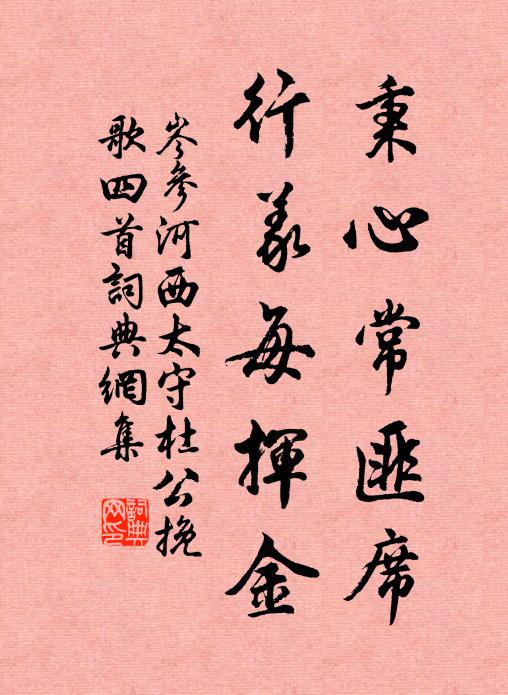 秉心常匪席
行义每揮金
岑參河西太守杜公挽
歌四首詞典網集
詞典
网印